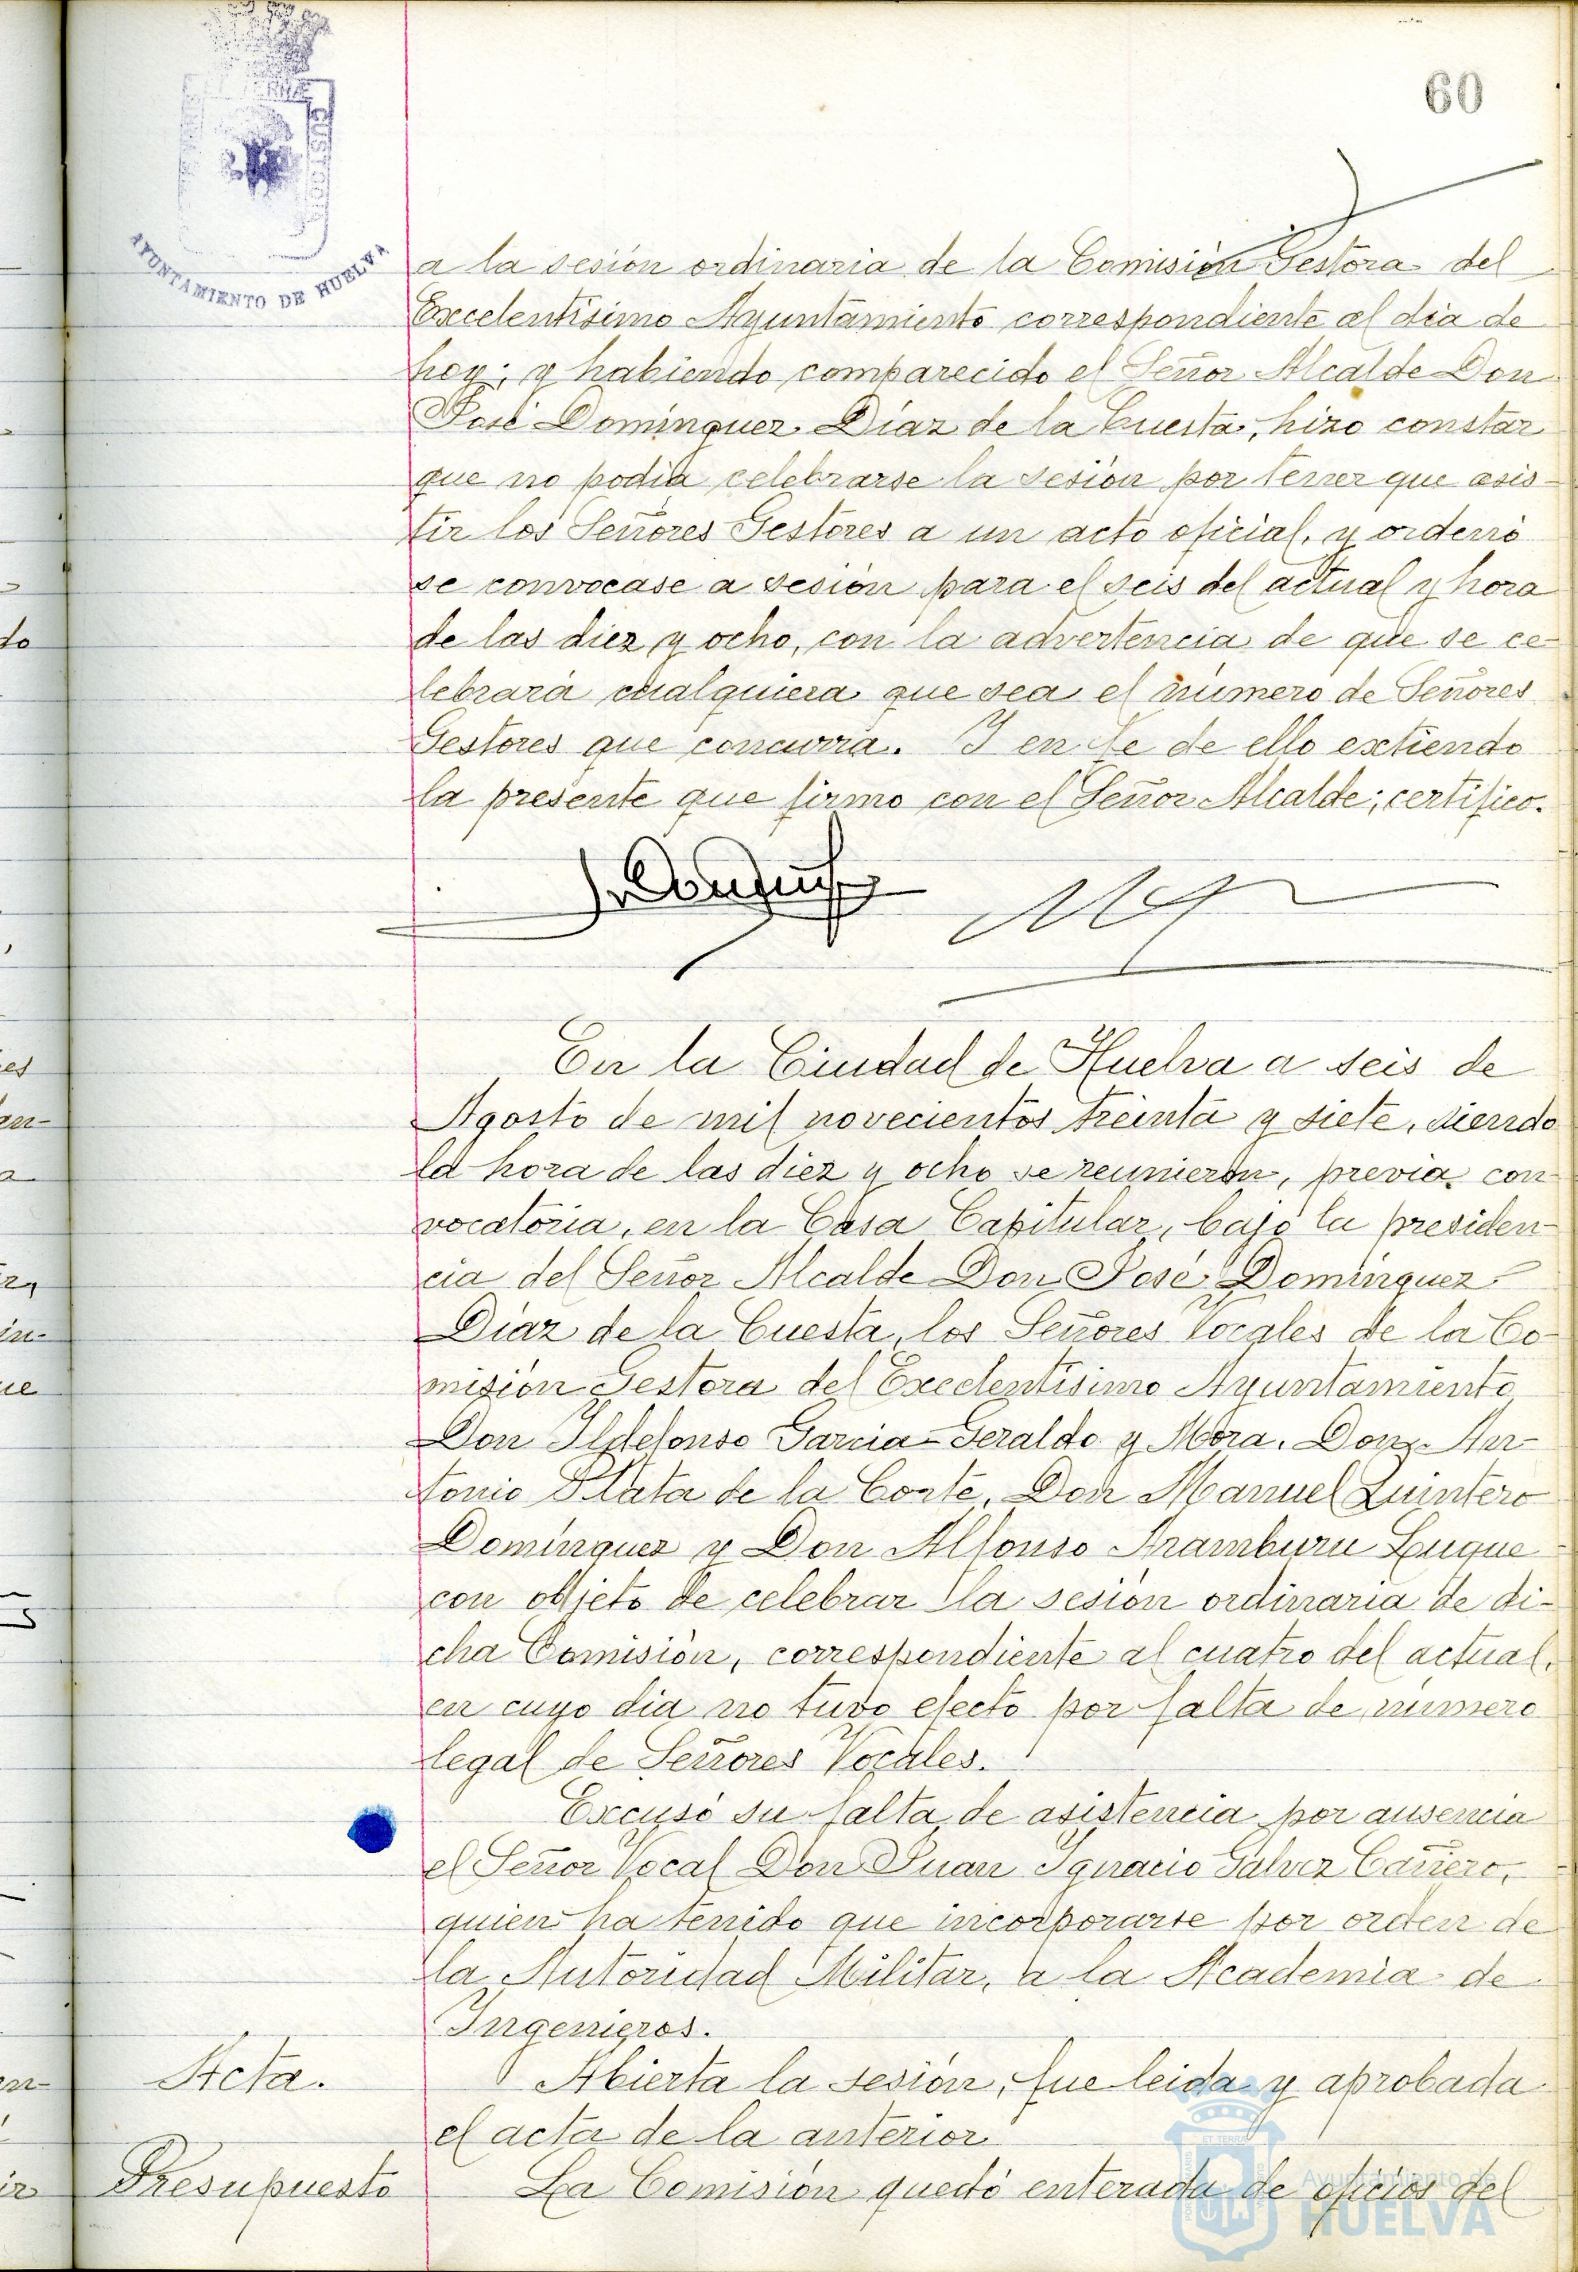 60
AYUNTAMIENTO DE HUELVA
a la sesión ordinaria de la Comisión Gestora del
Excelentísimo Ayuntamiento correspondiente al día de
hoy; y habiendo comparecido el Señor Alcalde Don
José Domínguez Díaz de la Cuesta, hizo constar
que no podía celebrarse la sesión por tener que asis-
tir los Señores Gestores a un acto oficial, y ordenó
se convocase a sesión para el seis del actual y hora
de las diez y ocho, con la advertencia de que se ce-
lebrará cualquiera que sea el número de Señores
Gestores que concurra. Y en fe de ello extiendo
la presente que firmo con el Señor Alcalde; certifico.
En la Ciudad de Huelva a seis de
Agosto de mil novecientos treinta y siete, siendo
la hora de las diez y ocho se reunieron, previa con-
vocatoria, en la Casa Capitular, bajo la presiden-
cia del Señor Alcalde Don José Domínguez
Díaz de la Cuesta, los Señores Vocales de la Co-
misión Gestora del Excelentísimo Ayuntamiento
Don Ildefonso Garcia-Geraldo y Mora, Don An-
tonio Plata de la Corte, Don Manuel Quintero
Domínguez y Don Alfonso Aramburu Luque
con objeto de celebrar la sesión ordinaria de di-
cha Comisión, correspondiente al cuatro del actual,
en cuyo dia no tuvo efecto por falta de número
legal de Señores Vocales.
Excusó su falta de asistencia por ausencia
el Señor Vocal Don Juan Ignacio Galvez Cañero,
quien ha tenido que incorporarse por orden de
la Autoridad Militar, a la Academia de
Ingenieros.
Acta.
Abierta la sesión, fue leida y aprobada
el acta de la anterior
Presupuesto
La Comisión quedó enterada de oficios del
Ayuntamiento de
HUELVA